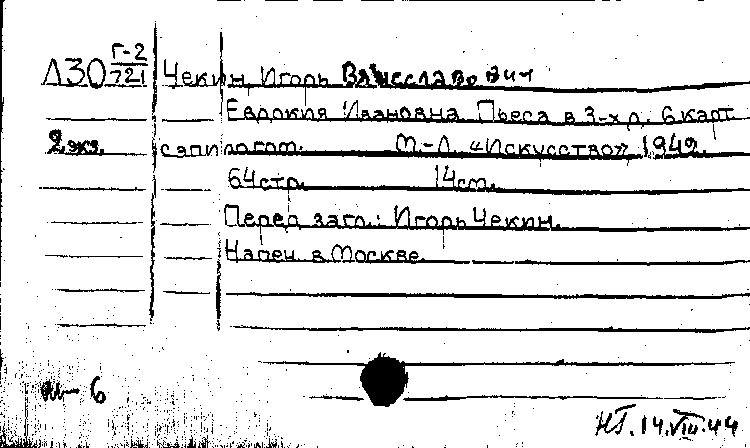 Л30 Г-2/721 Чекин, Игорь Вячеславович
Евдокия Ивановна. Пьеса в 3-х д. 6 карт.
2 экз. с эпилогом. М.-Л. «Искусство», 1942.
64 стр. 14 см.
Перед загл.: Игорь Чекин.
Напеч. в Москве.
6
НТ. 14.VIII.44